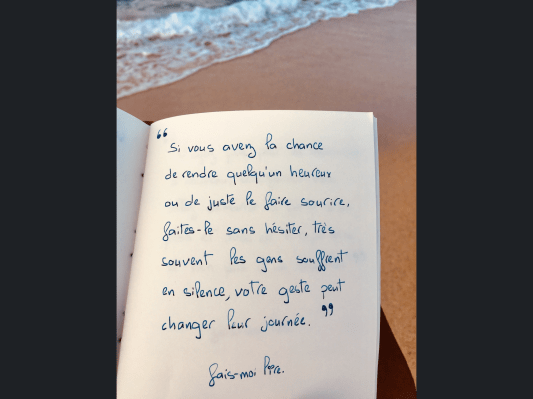 “
Si vous avez la chance
de rendre quelqu'un heureux
ou de juste le faire sourire,
faites-le sans hésiter, très
souvent les gens souffrent
en silence, votre geste peut
changer leur journée. ”
fais-moi lire.